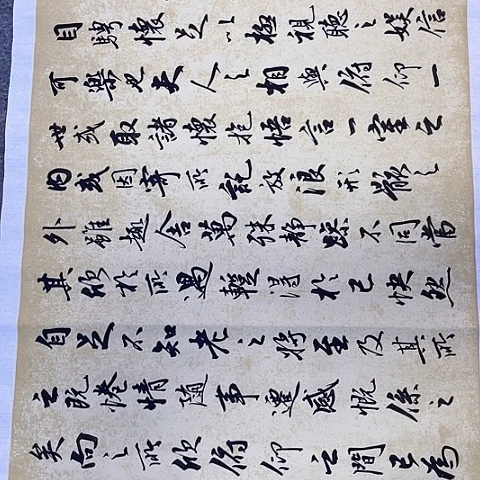 目騁懷足以極視聽之娛信
可樂也夫人之相與俯仰一
世或取諸懷抱悟言一室之
內或因寄所託放浪形骸之
外雖趣舍萬殊靜躁不同當
其欣於所遇暫得於己快然
自足不知老之將至及其所
之既惓情隨事遷感慨係之
矣向之所欣俯仰之間已為